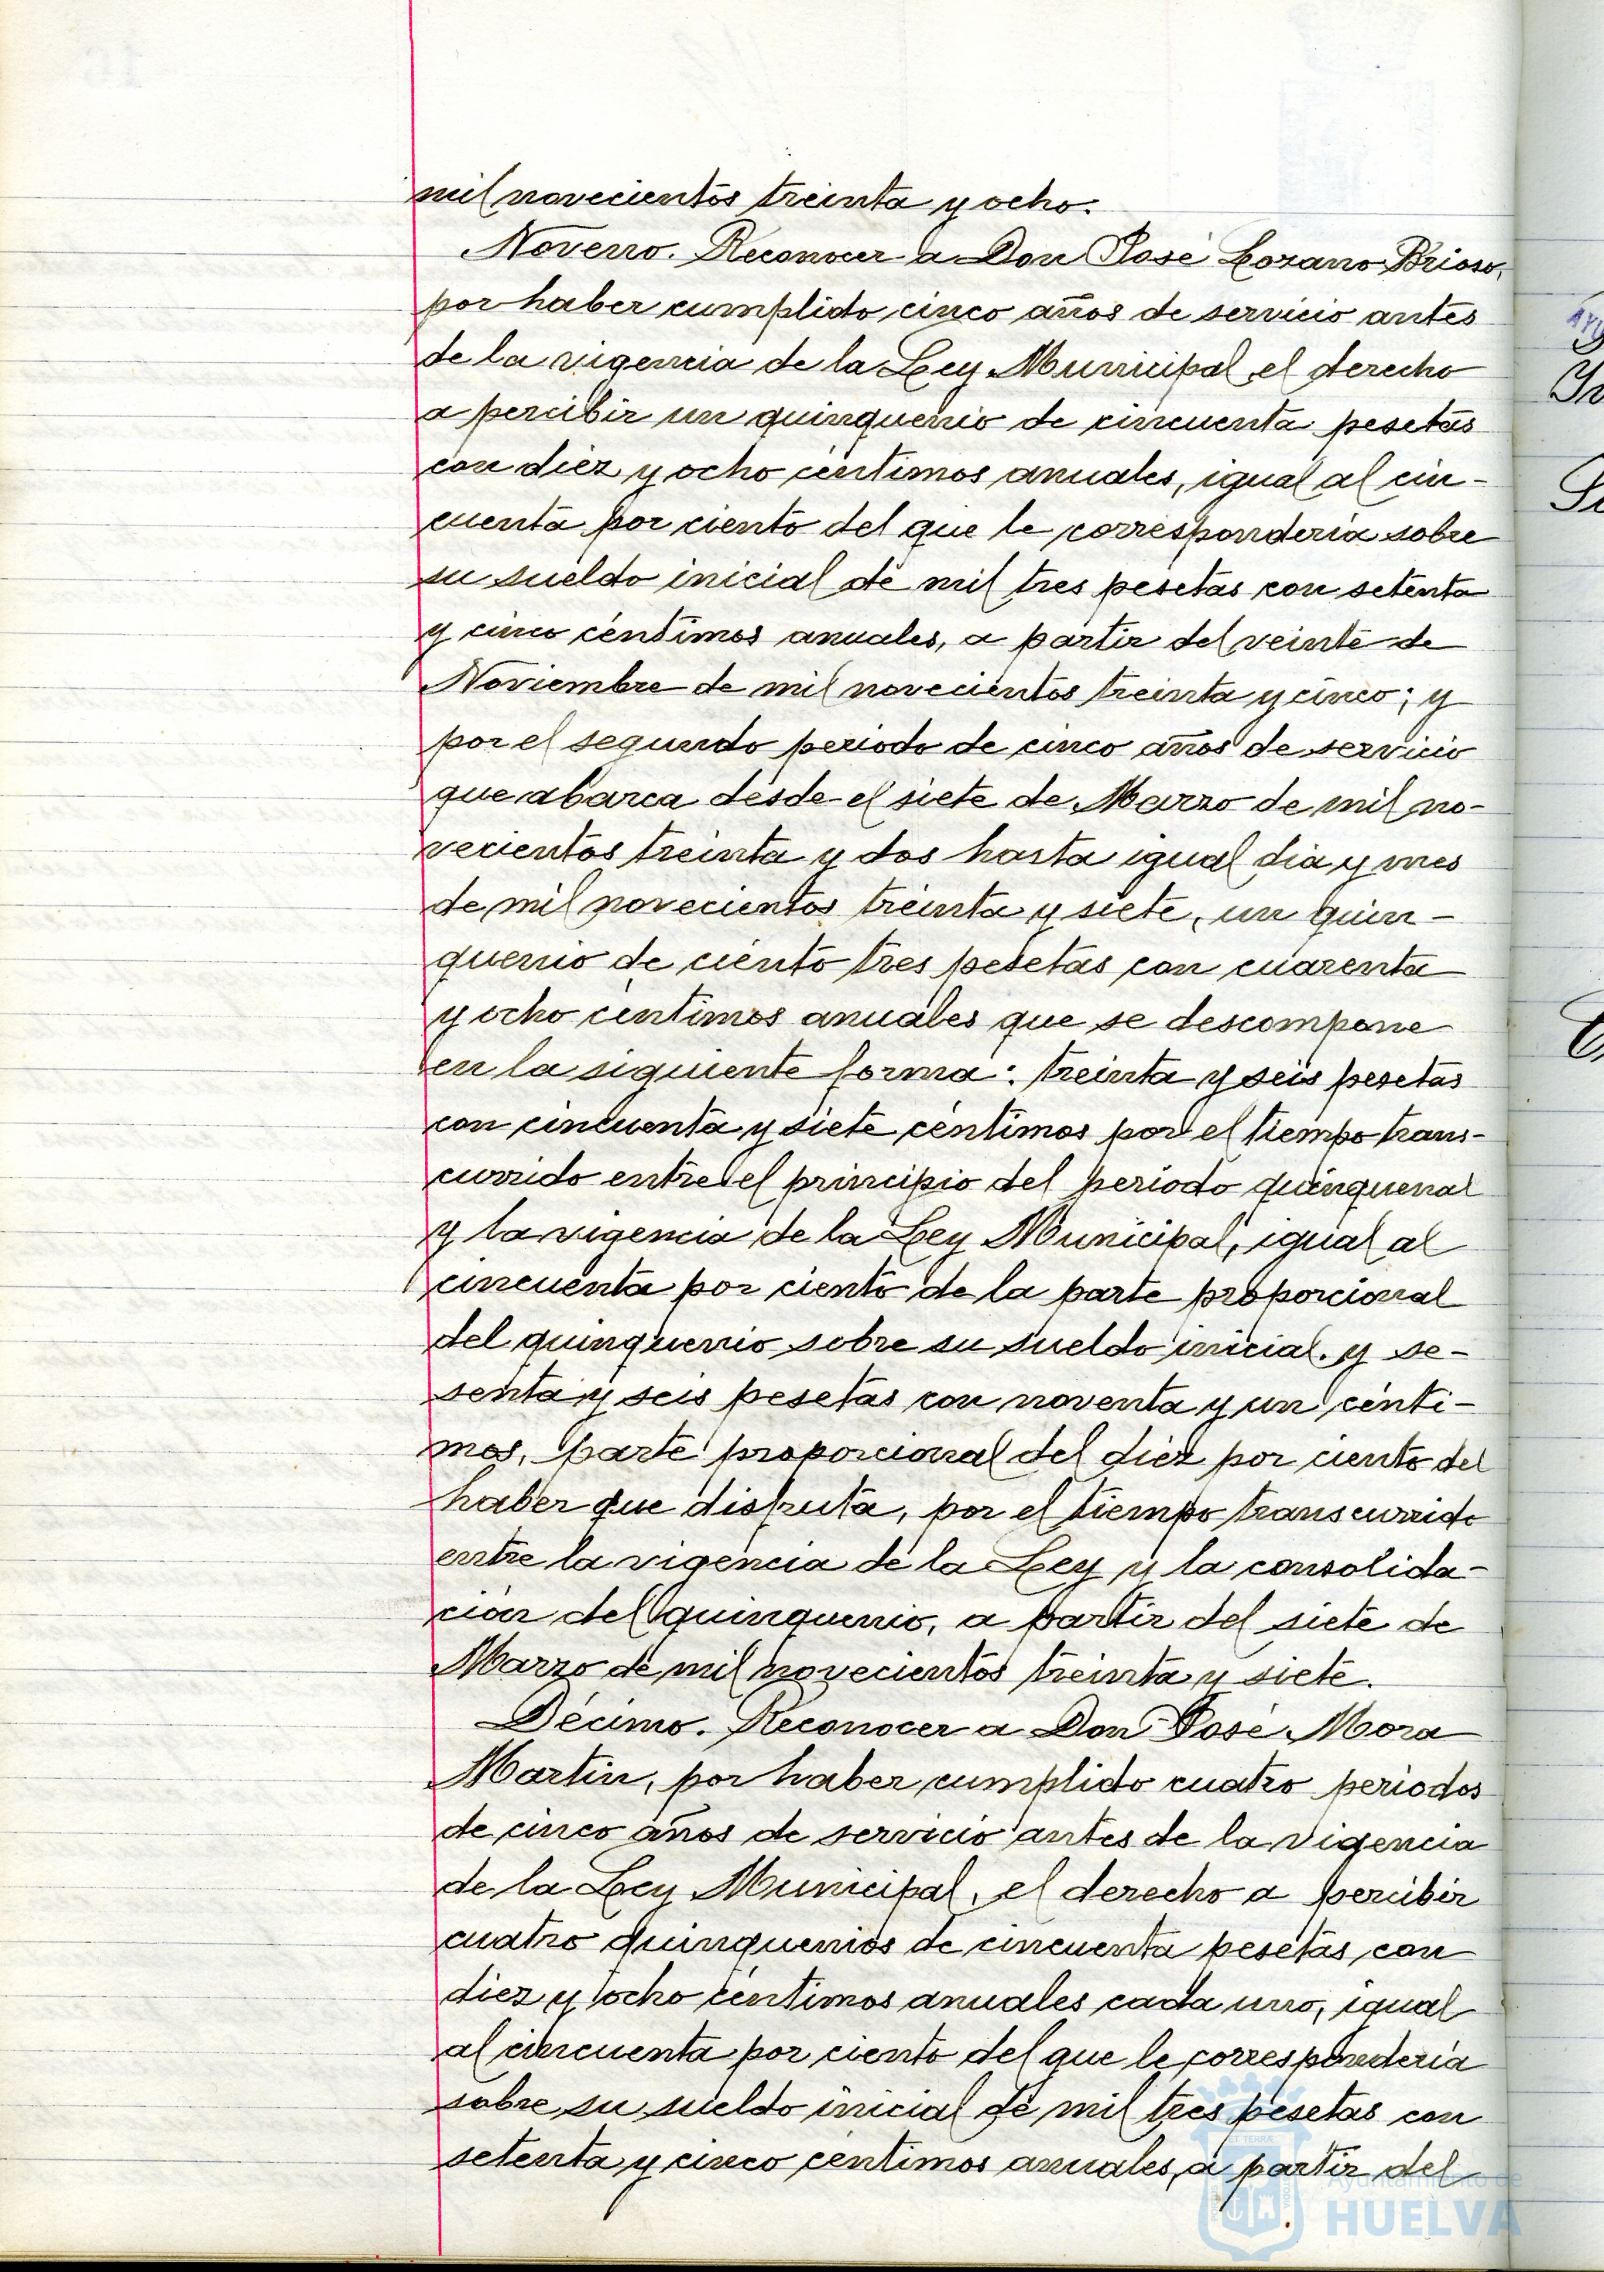 mil novecientos treinta y ocho.
Noveno. Reconocer a Don José Lozano Brioso,
por haber cumplido cinco años de servicio antes
de la vigencia de la Ley Municipal, el derecho
a percibir un quinquenio de cincuenta pesetas
con diez y ocho céntimos anuales, igual al cin-
cuenta por ciento del que le correspondería sobre
su sueldo inicial de mil tres pesetas con setenta
y cinco céntimos anuales, a partir del veinte de
Noviembre de mil novecientos treinta y cinco; y
por el segundo periodo de cinco años de servicio
que abarca desde el siete de Marzo de mil no-
vecientos treinta y dos hasta igual dia y mes
de mil novecientos treinta y siete, un quin-
quenio de ciento tres pesetas con cuarenta
y ocho céntimos anuales que se descompone
en la siguiente forma: treinta y seis pesetas
con cincuenta y siete céntimos por el tiempo trans-
currido entre el principio del periodo quinquenal
y la vigencia de la Ley Municipal, igual al
cincuenta por ciento de la parte proporcional
del quinquenio sobre su sueldo inicial. y se-
senta y seis pesetas con noventa y un cénti-
mos, parte proporcional del diez por ciento del
haber que disfruta, por el tiempo transcurrido
entre la vigencia de la Ley y la consolida-
ción del quinquenio, a partir del siete de
Marzo de mil novecientos treinta y siete.
Décimo. Reconocer a Don José Mora
Martin, por haber cumplido cuatro periodos
de cinco años de servicio antes de la vigencia
de la Ley Municipal, el derecho a percibir
cuatro quinquenios de cincuenta pesetas con
diez y ocho céntimos anuales cada uno, igual
al cincuenta por ciento del que le correspondería
sobre su sueldo inicial de mil tres pesetas con
setenta y cinco céntimos anuales, a partir del
Ayuntamiento de
HUELVA